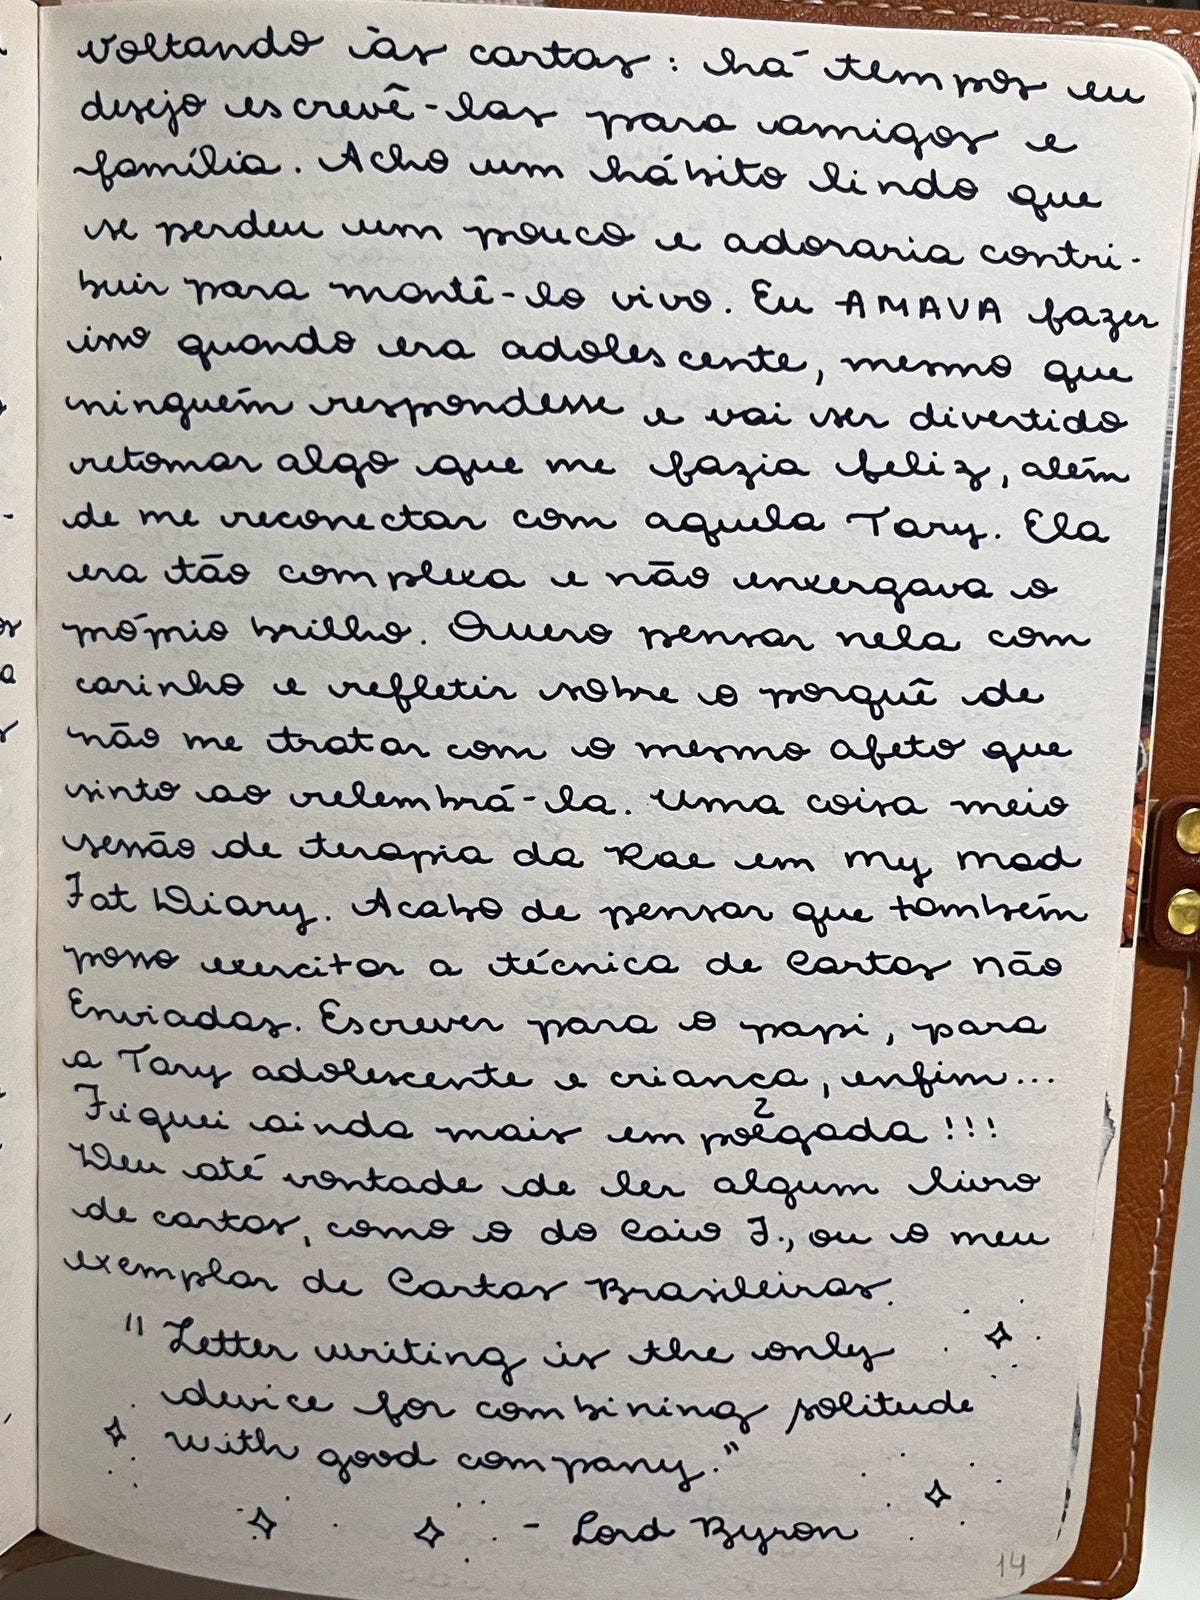 Voltando às cartas: há tempos eu
desejo escrevê-las para amigos e
família. Acho um hábito lindo que
se perdeu um pouco e adoraria contri-
buir para mantê-lo vivo. Eu AMAVA fazer
isso quando era adolescente, mesmo que
ninguém respondesse e vai ser divertido
retomar algo que me fazia feliz, além
de me reconectar com aquela Tary. Ela
era tão complexa e não enxergava o
próprio brilho. Quero pensar nela com
carinho e refletir sobre o porquê de
não me tratar com o mesmo afeto que
sinto ao relembrá-la. Uma coisa meio
sessão de terapia da Rae em My Mad
Fat Diary. Acabo de pensar que também
posso exercitar a técnica de Cartas Não
Enviadas. Escrever para o papi, para
a Tary adolescente e criança, enfim...
Fiquei ainda mais empolgada!!!
Deu até vontade de ler algum livro
de cartas, como o do Caio F., ou o meu
exemplar de Cartas Brasileiras.
"Letter writing is the only
device for combining solitude
with good company."
- Lord Byron
14